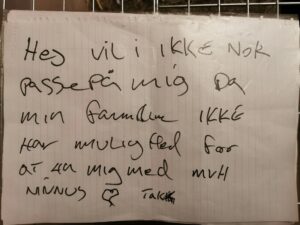 Hej vil i IKKE NOK
passe på mig Da
min familie IKKE
Har mulighed for
at mig med mvH
NINNUS Tak